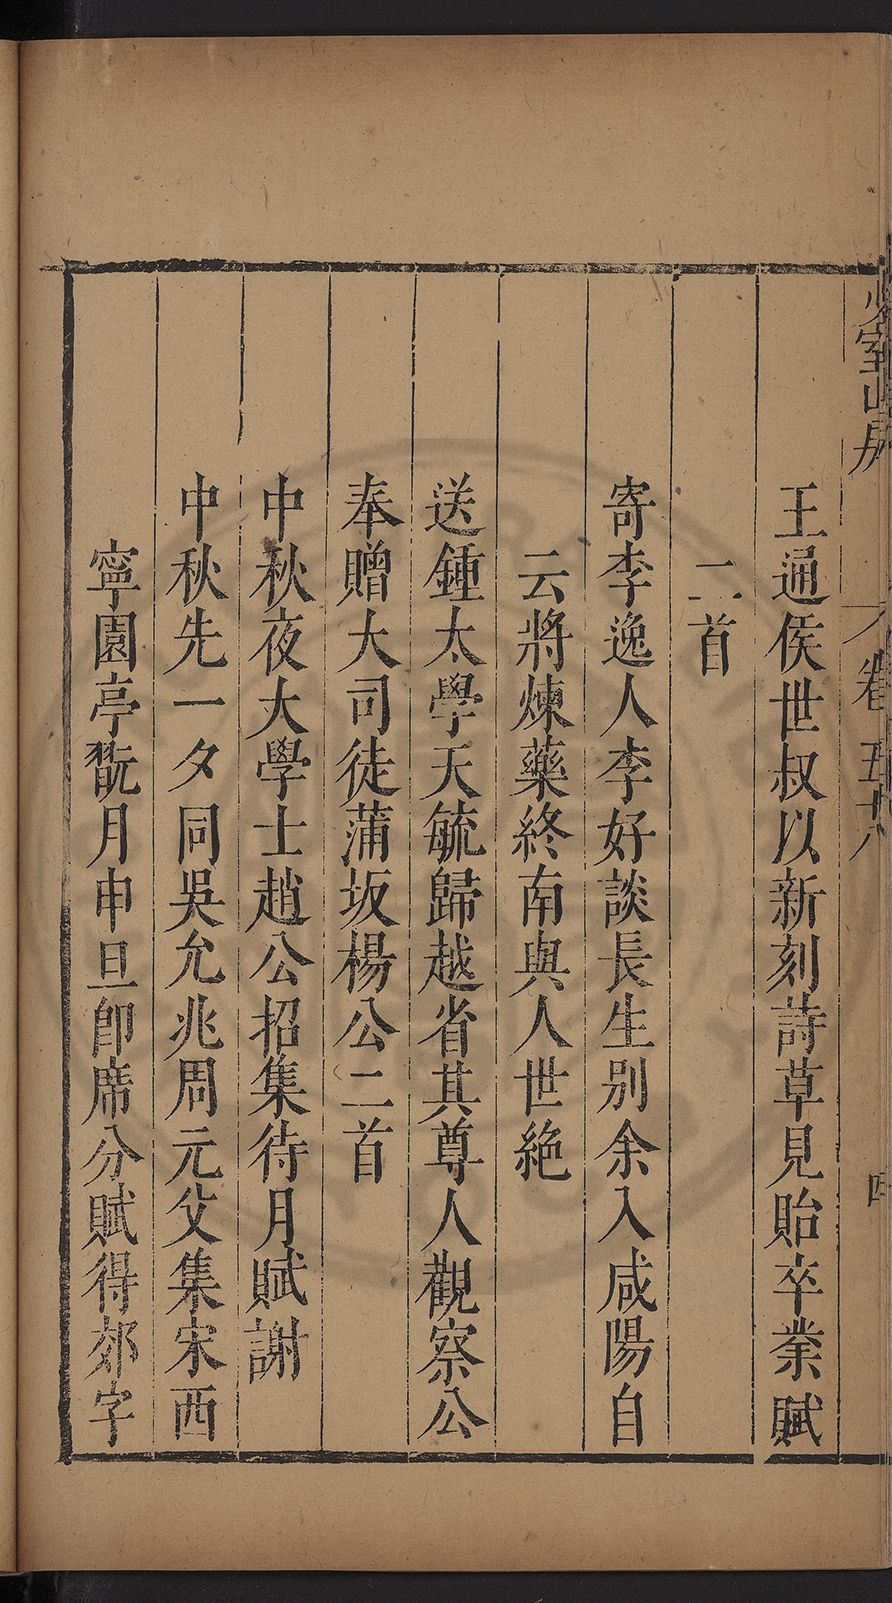 少室山房
卷五十八
四
王通侯世叔以新刻詩草見貽卒業賦
二首
寄李逸人李好談長生别余入咸陽自
云將煉藥終南與人世絶
送鍾太學天毓歸越省其尊人觀察公
奉贈大司徒蒲坂楊公二首
中秋夜大學士趙公招集待月賦謝
中秋先一夕同吳允兆周元父集宋西
寧園亭翫月申旦卽席分賦得郊字